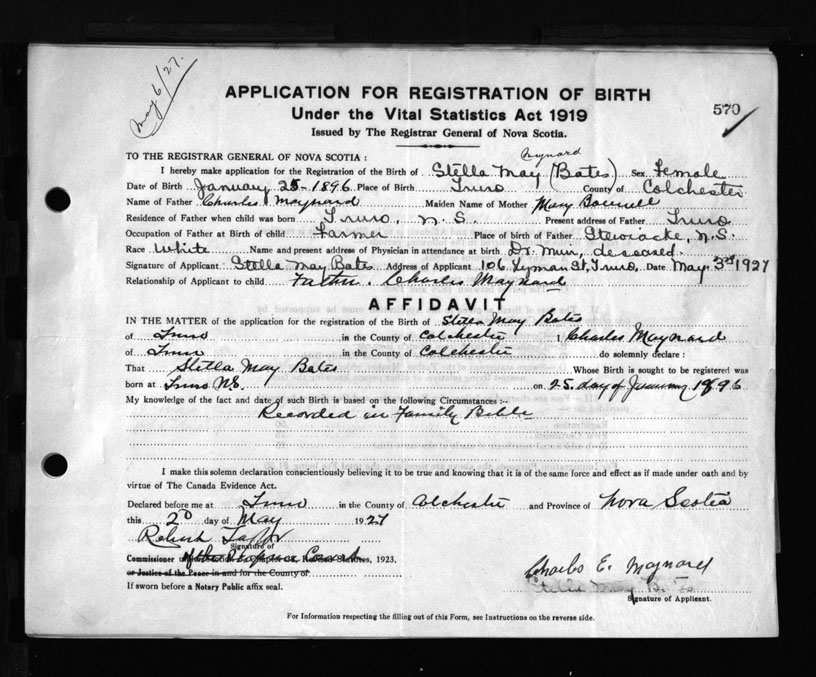 May 6/27.
APPLICATION FOR REGISTRATION OF BIRTH
570
Under the Vital Statistics Act 1919
Issued by The Registrar General of Nova Scotia.
TO THE REGISTRAR GENERAL OF NOVA SCOTIA :
Maynard
I hereby make application for the Registration of the Birth of Stella May (Bates) Sex Female
Date of Birth January 25-1896 Place of Birth Truro County of Colchester
Name of Father Charles Maynard Maiden Name of Mother Mary
Residence of Father when child was born Truro, N.S. Present address of Father Truro
Occupation of Father at Birth of child Farmer Place of birth of Father Stewiacke, N.S.
Race White Name and present address of Physician in attendance at birth Dr. Muir, deceased.
Signature of Applicant Stella May Bates Address of Applicant 106 Lyman St, Truro, Date May 3rd 1927
Relationship of Applicant to child Father. Charles Maynard
AFFIDAVIT
IN THE MATTER of the application for the registration of the Birth of Stella May Bates
of Truro in the County of Colchester I, Charles Maynard
of Truro in the County of Colchester do solemnly declare :
That Stella May Bates Whose Birth is sought to be registered was
born at Truro N.S. on 25 day of January 1896
My knowledge of the fact and date of such Birth is based on the following Circumstances :-
Recorded in Family Bible
I make this solemn declaration conscientiously believing it to be true and knowing that it is of the same force and effect as if made under oath and by
virtue of The Canada Evidence Act.
Declared before me at Truro in the County of Colchester and Province of Nova Scotia
this day of May 1927
Signature of
Commissioner of the Supreme Court Statutes, 1923.
or Justice of the Peace in and for the County of
If sworn before a Notary Public affix seal.
Charles E. Maynard
Stella May Bates
Signature of Applicant.
For Information respecting the filling out of this Form, see Instructions on the reverse side.